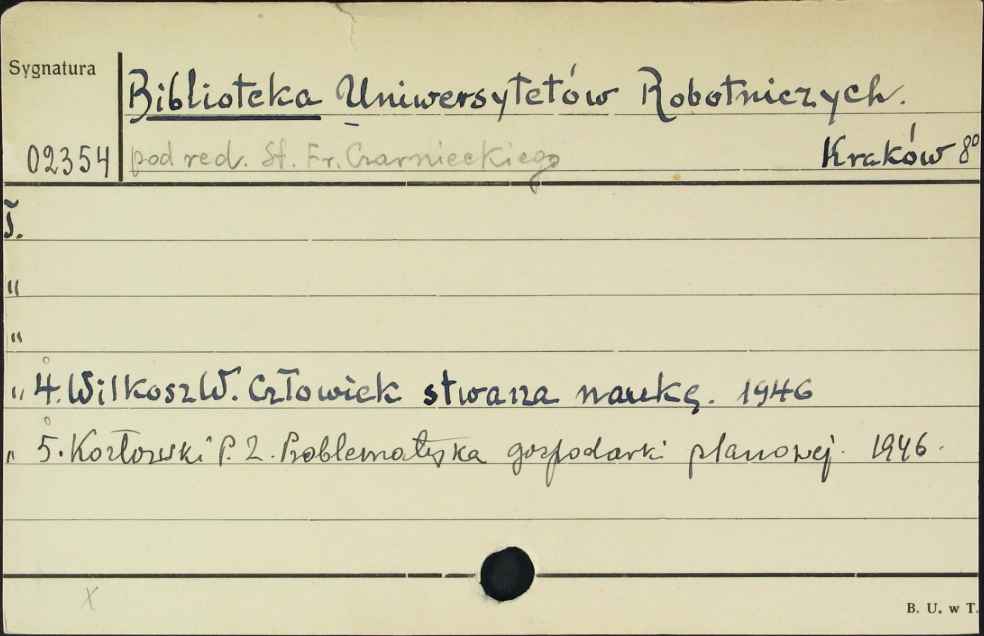 Sygnatura
Biblioteka Uniwersytetów Robotniczych.
02354 pod red. St. Fr. Czarnieckiego Kraków 8°
T.
"
"
" 4. Wilkosz W. Człowiek stwarza naukę. 1946
" 5. Kozłowski P. Z. Problematyka gospodarki planowej. 1946.
x
B. U. w T.